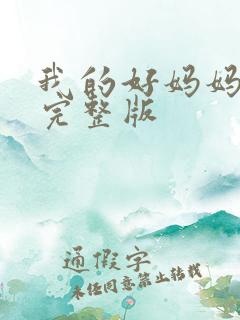 我的好妈妈
完整版
通假字
未经同意禁止转载